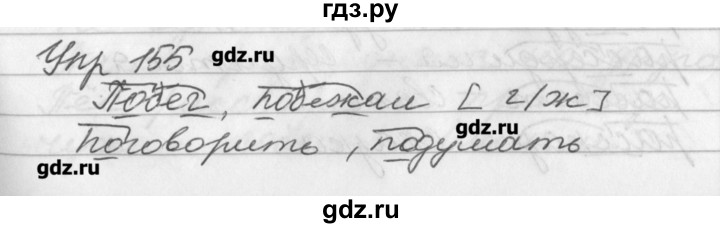 гдз.ру
Упр 155 gdz.ru
Побег, побежал [г/ж]
gdz.ru
поговорить, подумать
gdz.ru
gdz.ru